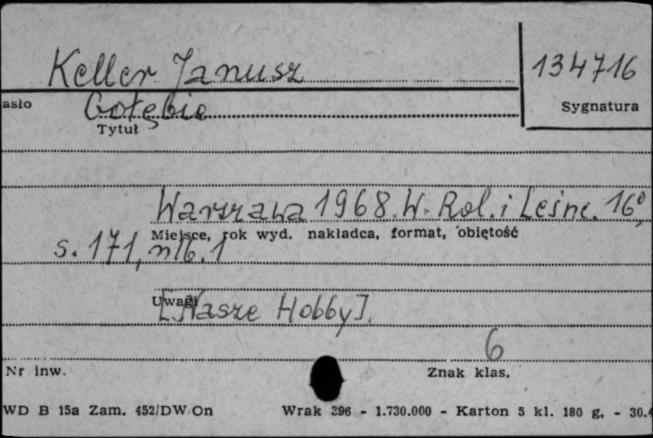 Keller Janusz
134716
asło
Gołębie
Sygnatura
Tytuł
Warszawa 1968. W. Rol. i Leśne. 16°,
Miejsce, rok wyd. nakładca, format, objętość
s. 171, nlb. 1
Uwagi
[Nasze Hobby].
6
Nr inw.
Znak klas.
WD B 15a Zam. 452/DW/On Wrak 396 - 1.730.000 - Karton 5 kl. 180 g. - 30.4